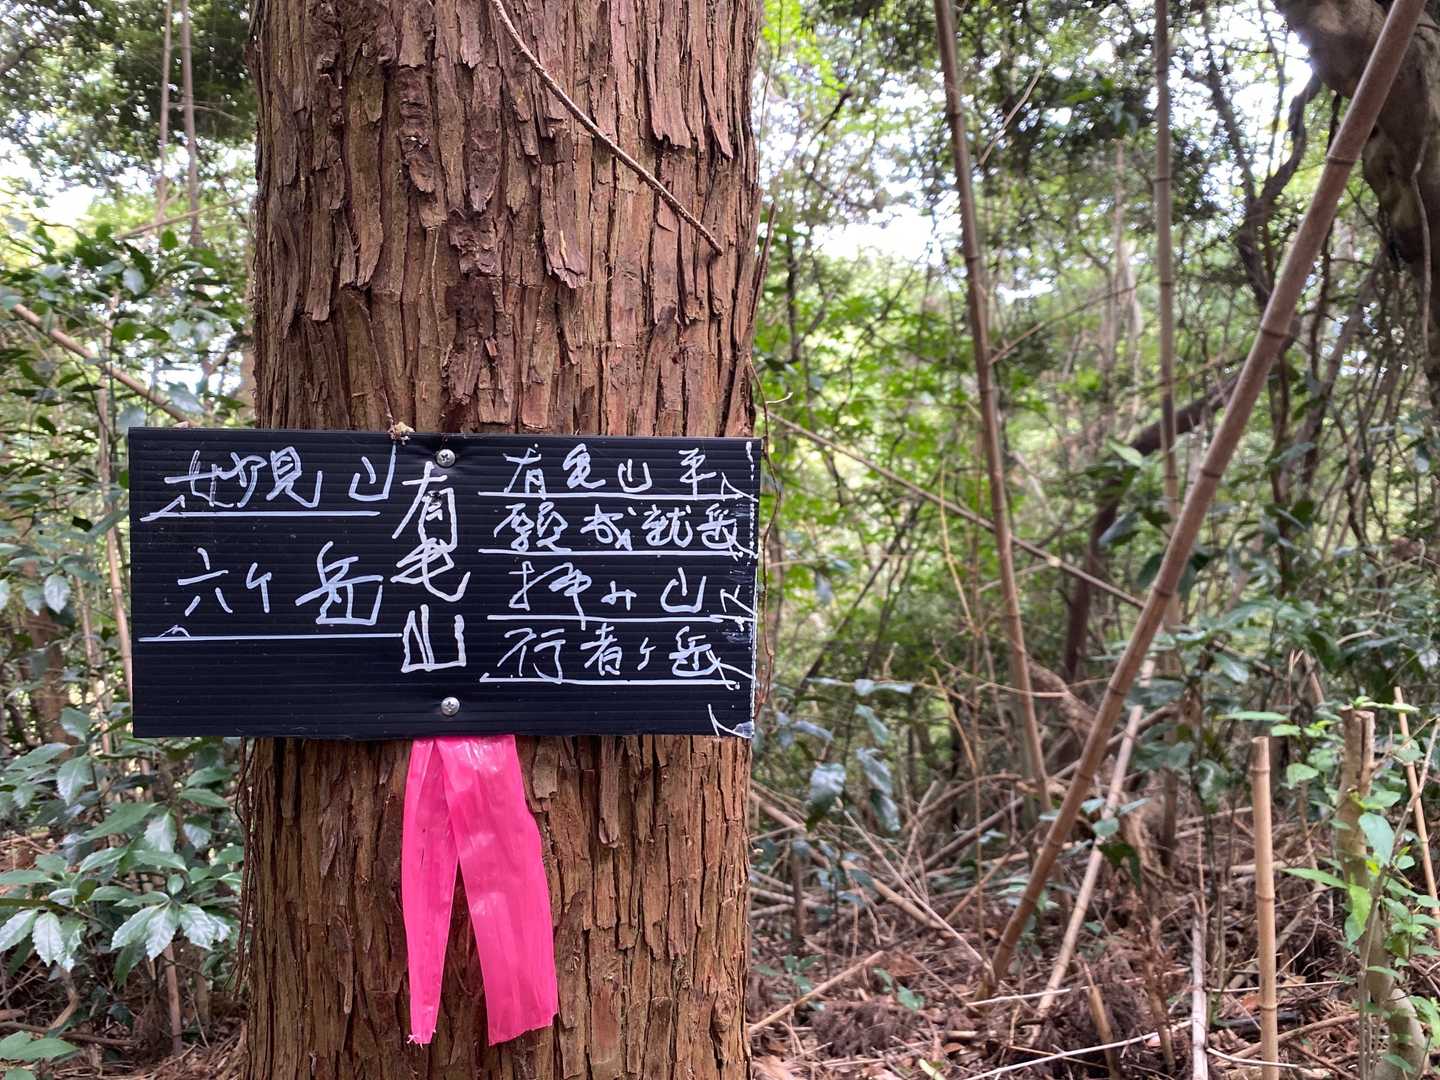 妙見山
六ケ岳
有毛山
有毛山平
願成就岳
拝み山
行者ヶ岳